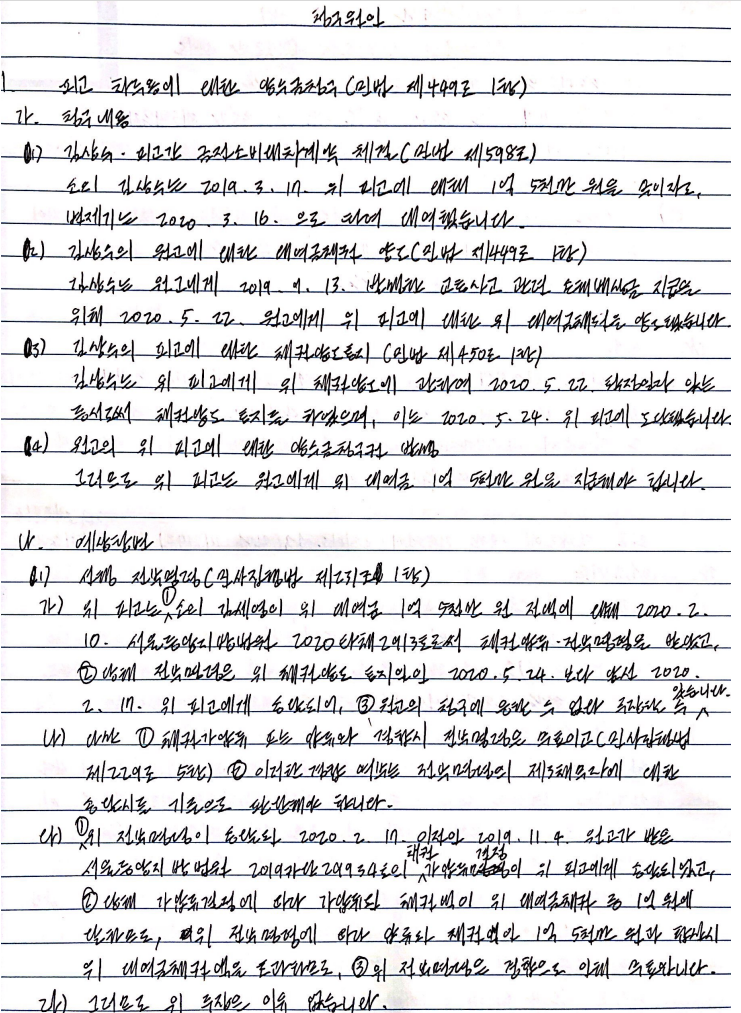 청구원인
1. 피고 차두원에 대한 양수금청구(민법 제449조 1항)
가. 청구내용
(1) 김상수·피고간 금전소비대차계약 체결(민법 제598조)
소외 김상수는 2019. 3. 17. 위 피고에 대해 1억 5천만 원을 무이자로,
변제기는 2020. 3. 16. 으로 하여 대여했습니다.
(2) 김상수의 원고에 대한 대여금채권 양도(민법 제449조 1항)
김상수는 원고에게 2019. 9. 13. 발생한 교통사고 관련 손해배상금 지급을
위해 2020. 5. 22. 원고에게 위 피고에 대한 위 대여금채권을 양도했습니다.
(3) 김상수의 피고에 대한 채권양도통지(민법 제450조 1항)
김상수는 위 피고에게 위 채권양도에 관하여 2020. 5. 22. 확정일자 있는
증서로써 채권양도 통지를 하였으며, 이는 2020. 5. 24. 위 피고에 도달했습니다.
(4) 원고의 위 피고에 대한 양수금청구권 발생
그러므로 위 피고는 원고에게 위 대여금 1억 5천만 원을 지급해야 합니다.
나. 예상항변
(1) 선행 전부명령(민사집행법 제231조 1항)
가) 위 피고는 ①소외 김세영이 위 대여금 1억 5천만 원 전액에 대해 2020. 2.
10. 서울중앙지방법원 2020타채2913호로서 채권압류·전부명령을 받았고,
②당해 전부명령은 위 채권양도 통지일인 2020. 5. 24. 보다 앞선 2020.
2. 17. 위 피고에게 송달되어, ③원고의 청구에 응할 수 없다 주장할 수 있습니다.
나) 다만 ①채권가압류 또는 압류와 경합시 전부명령은 무효이고(민사집행법
제229조 5항) ②이러한 경합 여부는 전부명령의 제3채무자에 대한
송달시를 기준으로 판단해야 합니다.
다) ①위 전부명령이 송달된 2020. 2. 17. 이전인 2019. 11. 4. 원고가 받은
서울중앙지방법원 2019카단29934호의 채권가압류결정이 위 피고에게 송달되었고,
②당해 가압류결정에 따라 가압류된 채권액이 위 대여금채권 중 1억 원에
달하므로, 위 전부명령에 따라 압류된 채권액인 1억 5천만 원과 합산시
위 대여금채권액을 초과하므로, ③위 전부명령은 경합으로 인해 무효입니다.
라) 그러므로 위 주장은 이유 없습니다.